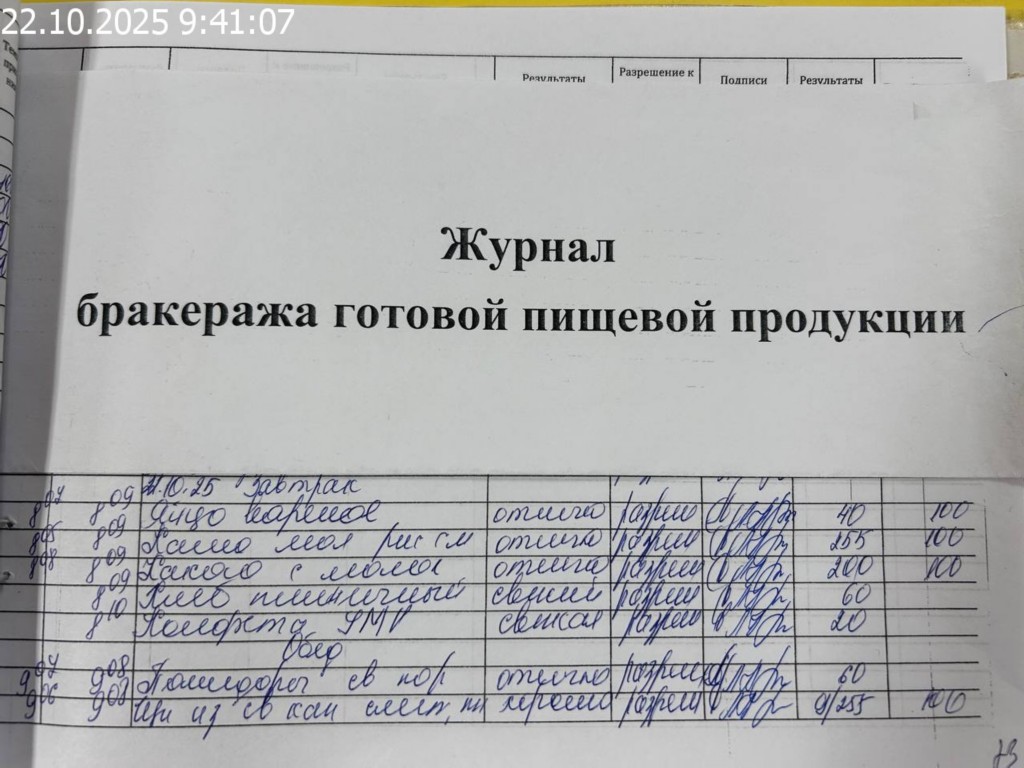 22.10.2025 9:41:07
Результаты Разрешение к Подписи Результаты
Журнал
бракеража готовой пищевой продукции
10.25 Завтрак
8 07 8 09 Яйцо вареное отлично разреш 40 100
8 05 8 09 Каша мол рис см отлично разреш 255 100
8 08 8 09 Какао с молок отлично разреш 200 100
8 09 Хлеб пшеничный свежий разреш 60
8 10 Конфета свежая разреш 20
Обед
9 07 9 08 Помидоры св пор отлично разреш 60
9 06 9 08 Щи из св кап смет, хорошо разреш 9/255 100
73